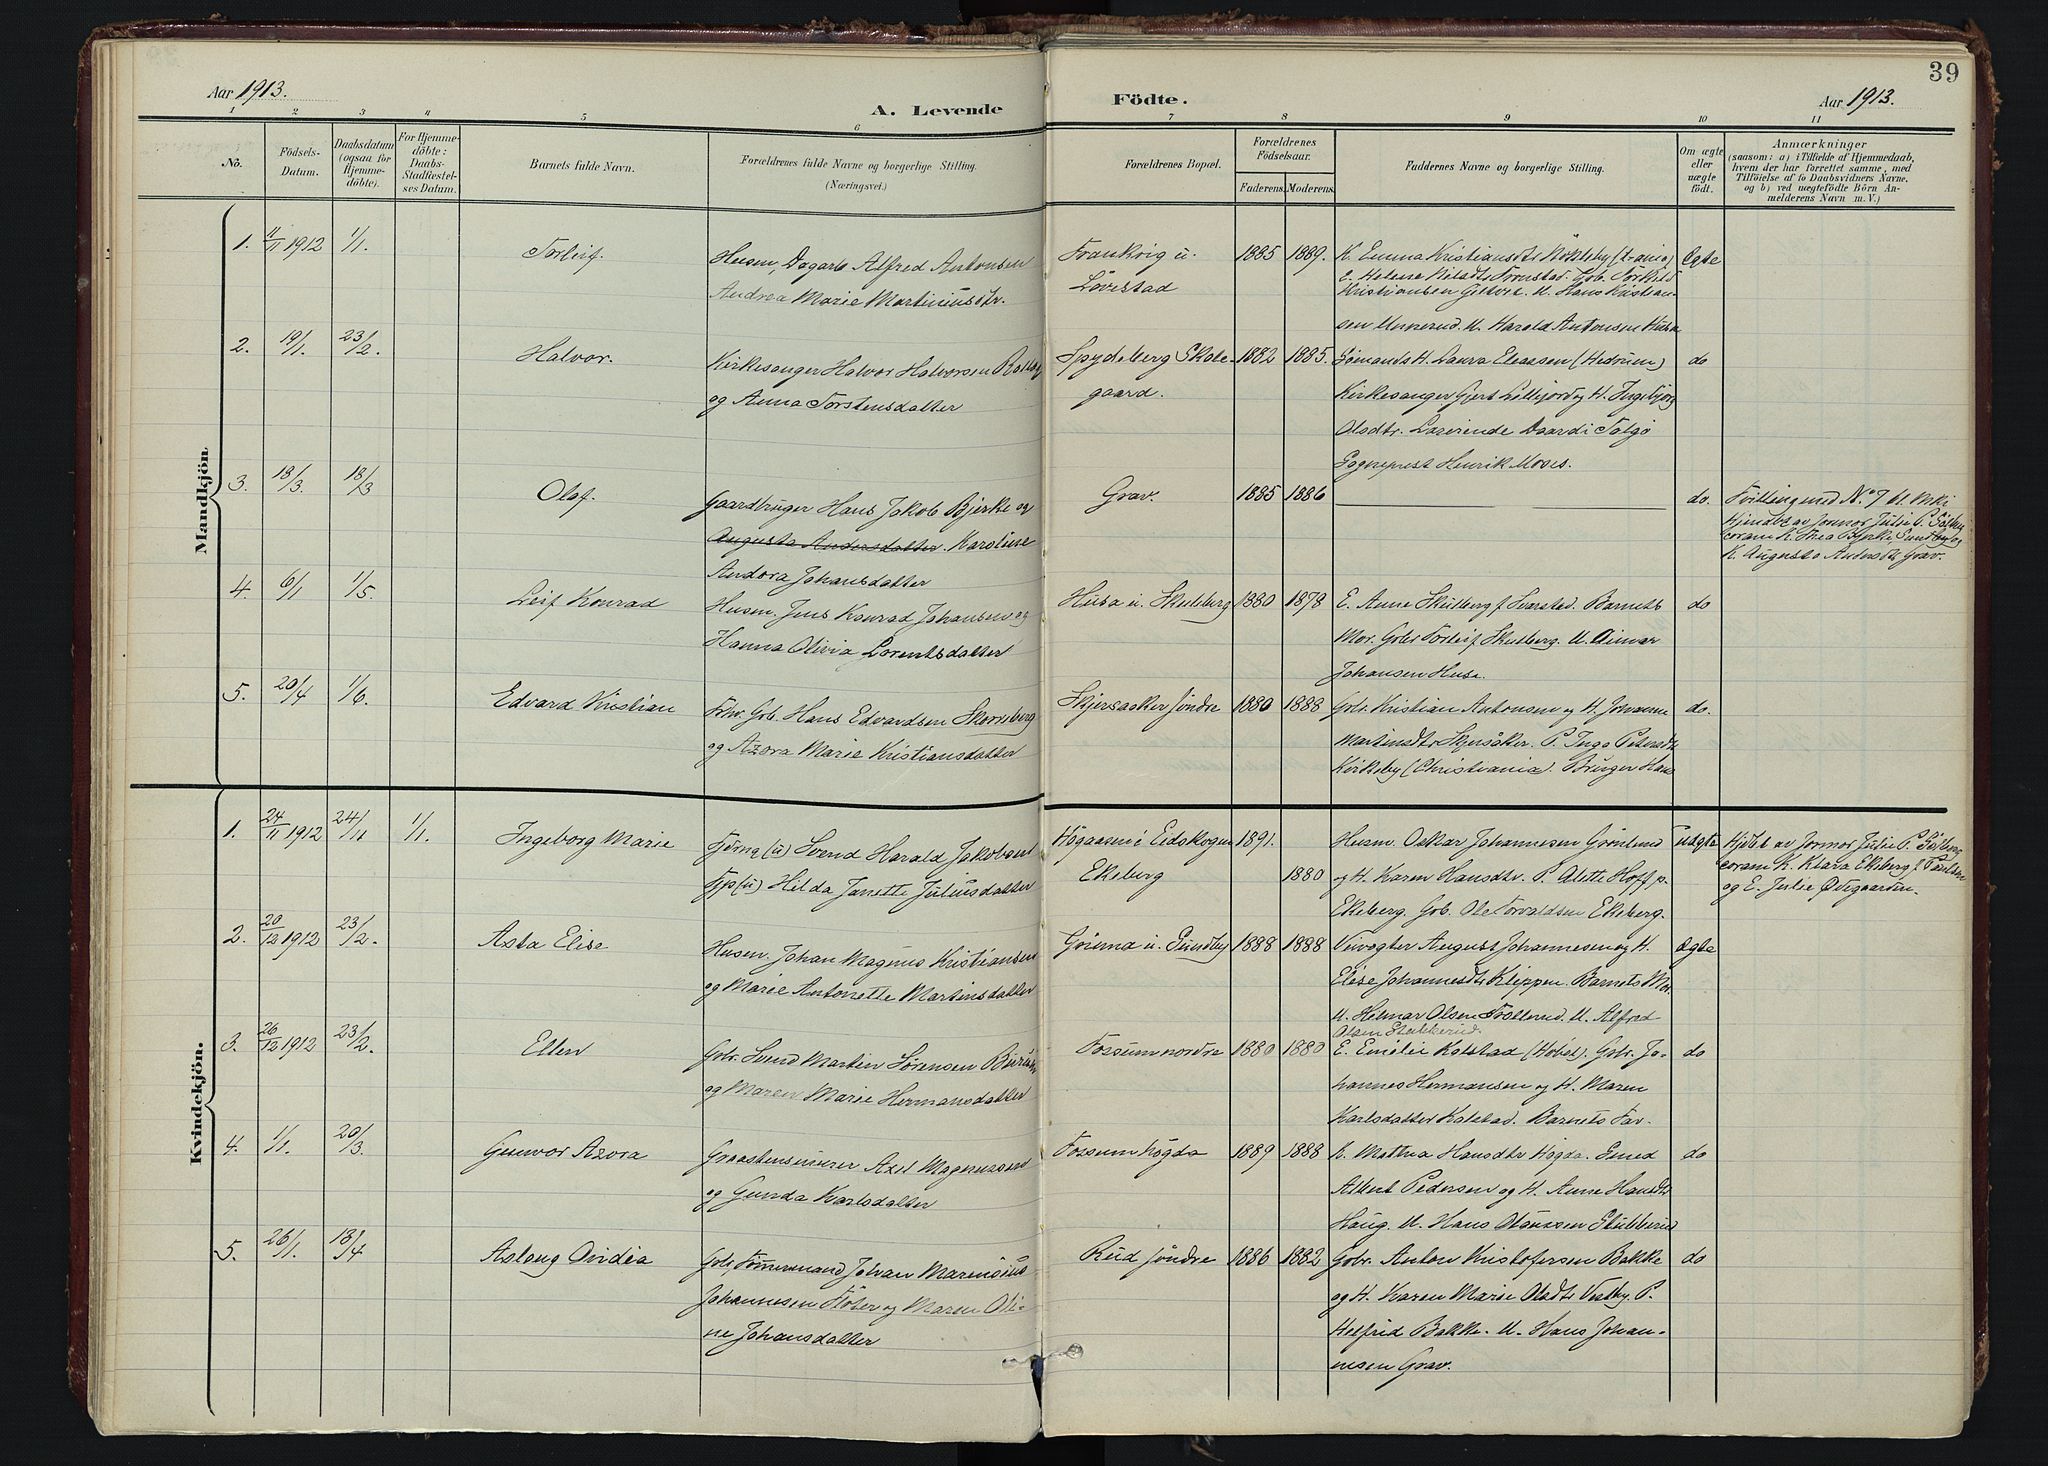 39
Aar 1913.
A. Levende
Födte.
Aar 1913.
1 2 3 4 5 6 7 8 9 10 11
No.
Födsels-Datum.
Daabsdatum (ogsaa for Hjemmedöbte).
For Hjemmedöbte: Daabs-Stadfæstelses Datum.
Barnets fulde Navn.
Forældrenes fulde Navne og borgerlige Stilling. (Næringsvei.)
Forældrenes Bopæl.
Forældrenes Födselsaar.
Faderens. Moderens.
Faddernes Navne og borgerlige Stilling.
Om ægte eller uægte födt.
Anmærkninger
(saasom: a) i Tilfælde af Hjemmedaab, hvem der har forrettet samme, med Tilföielse af to Daabsvidners Navne. og b) ved uægtefödte Börn Anmelderens Navn m. V.)
Mandkjön.
1. 11/11 1912 1/1. Torleif.
Husm, Dagarb Alfred Antonsen
Andrea Marie Martiniusdtr.
Frankrig u.
Løvestad
1885 1889.
K. Emma Kristiansdtr
E. Helene
Kristiansen M. Hans Kristian-
sen M. Harald Antonsen Husa
Ægte
2. 19/1. 23/2. Halvor.
Kirkesanger Halvor Halvorsen
og Anna Torstensdatter
Spydeberg Skole-
gaard.
1882 1885.
Sømands H. Laura Eleassen (Hedrum)
Kirkesanger Gjert Lillejord og H. Ingebjørg
Olsdtr.
Sogneprest Henrik Moses.
do
3. 18/3. 18/3 Olaf.
Gaardbruger Hans Jakob Bjerke og
Augusta Andersdatter. Karoline
Andora Johansdatter
Grav.
1885 1886
do.
Tvilling med No 7 bl. Pike
Hjemdbt av Jormor Julie P.
coram K. Thea Bjerke, Sundby og
K. Augusta Andersdtr Grav.
4. 6/1 1/5. Leif Konrad
Husm. Jens Konrad Johansen og
Hanna Olivia Lorentsdatter
Husa u. Skulberg
1880 1878
E. Anne Skulberg f. Svarstad. Barnets
Mor. Gbr Torleif Skulberg. U. Einar
Johansen Husa.
do
5. 20/4 1/6. Edvard Kristian
Fhv. Gb. Hans Edvardsen
og Azora Marie Kristiansdatter
Skjersaaker søndre
1880 1888
Gbr. Kristian Antonsen og H. Johanne
Martinsdtr Skjersaker. P. Inga Petersdtr
Kirkeby (Christiania). Bruger Hans
do.
Kvindekjön.
1. 24/11 1912 24/11 1/1. Ingeborg Marie
Fjdrng (u) Svend Harald Jakobsen
Tjp (u) Hilda Janette Juliusdatter
Høgaasen i Eidskogen
Ekeberg
1891.
1880
Husm. Oskar Johannesen Grønlund
og H. Karen Hansdtr. P. Alette Hoff p.
Ekeberg. Gb. Ole Torvaldsen Ekeberg.
uægte
Hjdbt av Jormor Julie P.
coram K. Klara Ekeberg f. Paulsen
og E. Julie Ødegaarden.
2. 20/12 1912 23/2. Asta Elise
Husm. Johan Magnus Kristiansen
og Marie Antonette Martinsdatter
u. Sundby
1888 1888
August Johannesen og H.
Elise Johannesdtr Klippen. Barnets Mor.
U. Helmar Olsen Trollerud. U. Alfred
Olsen Stubberud.
Ægte
3. 26/12 1912 23/2. Ellen
Gbr. Svend Martin Sørensen
og Maren Marie Hermansdatter
Fossum nordre
1880 1880
E. Emelie Kolstad (Hobøl). Gbr. Jo-
hannes Hermansen og H. Maren
Karlsdatter Kolstad. Barnets Far.
do
4. 1/1. 20/3. Gunvor Azora
Graastensmurer Axel Magnussen
og Gunda Karlsdatter
Fossum høgda
1889 1888
K. Mathea Hansdtr Høgda. Smed
Albert Pedersen og H. Anne Hansdtr
Haug. U. Hans Olaussen Stubberud
do
5. 26/1. 13/4 Aslaug Ovidia
Gbr, Tømmermand Johan Marensius
Johannesen Fløter og Maren Oli-
ne Johansdatter
Rud søndre
1886 1882
Gbr. Anton Kristofersen Bakke
og H. Karen Marie Olsdtr Vestby. P.
Helfrid Bakke. U. Hans Johan-
nesen Grav.
do